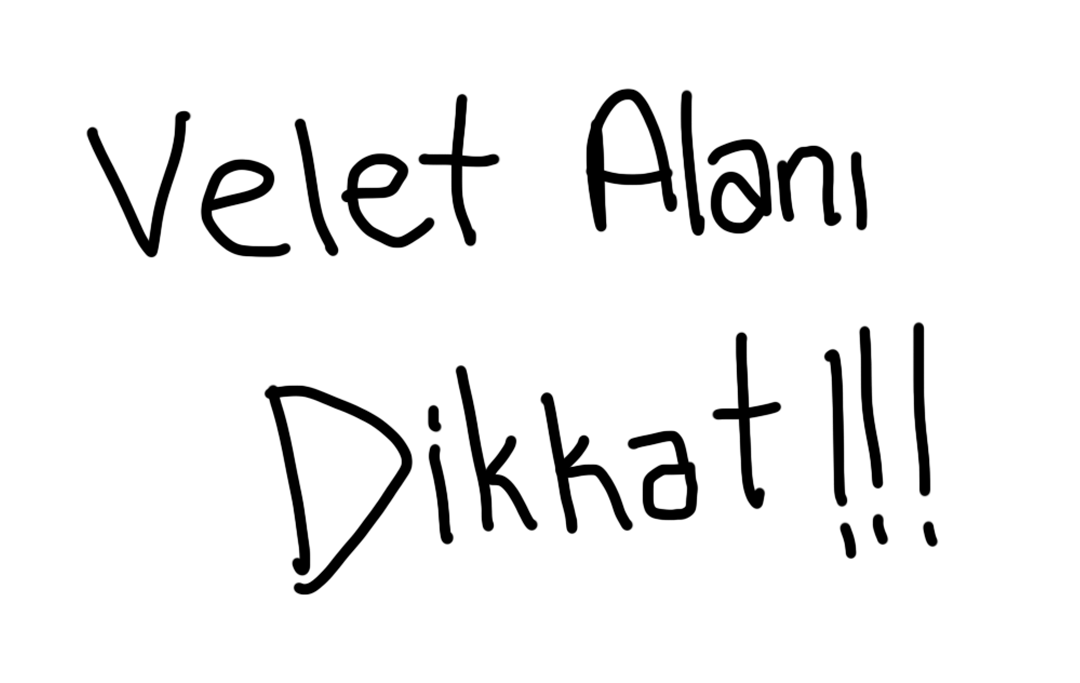 Velet Alanı
Dikkat!!!